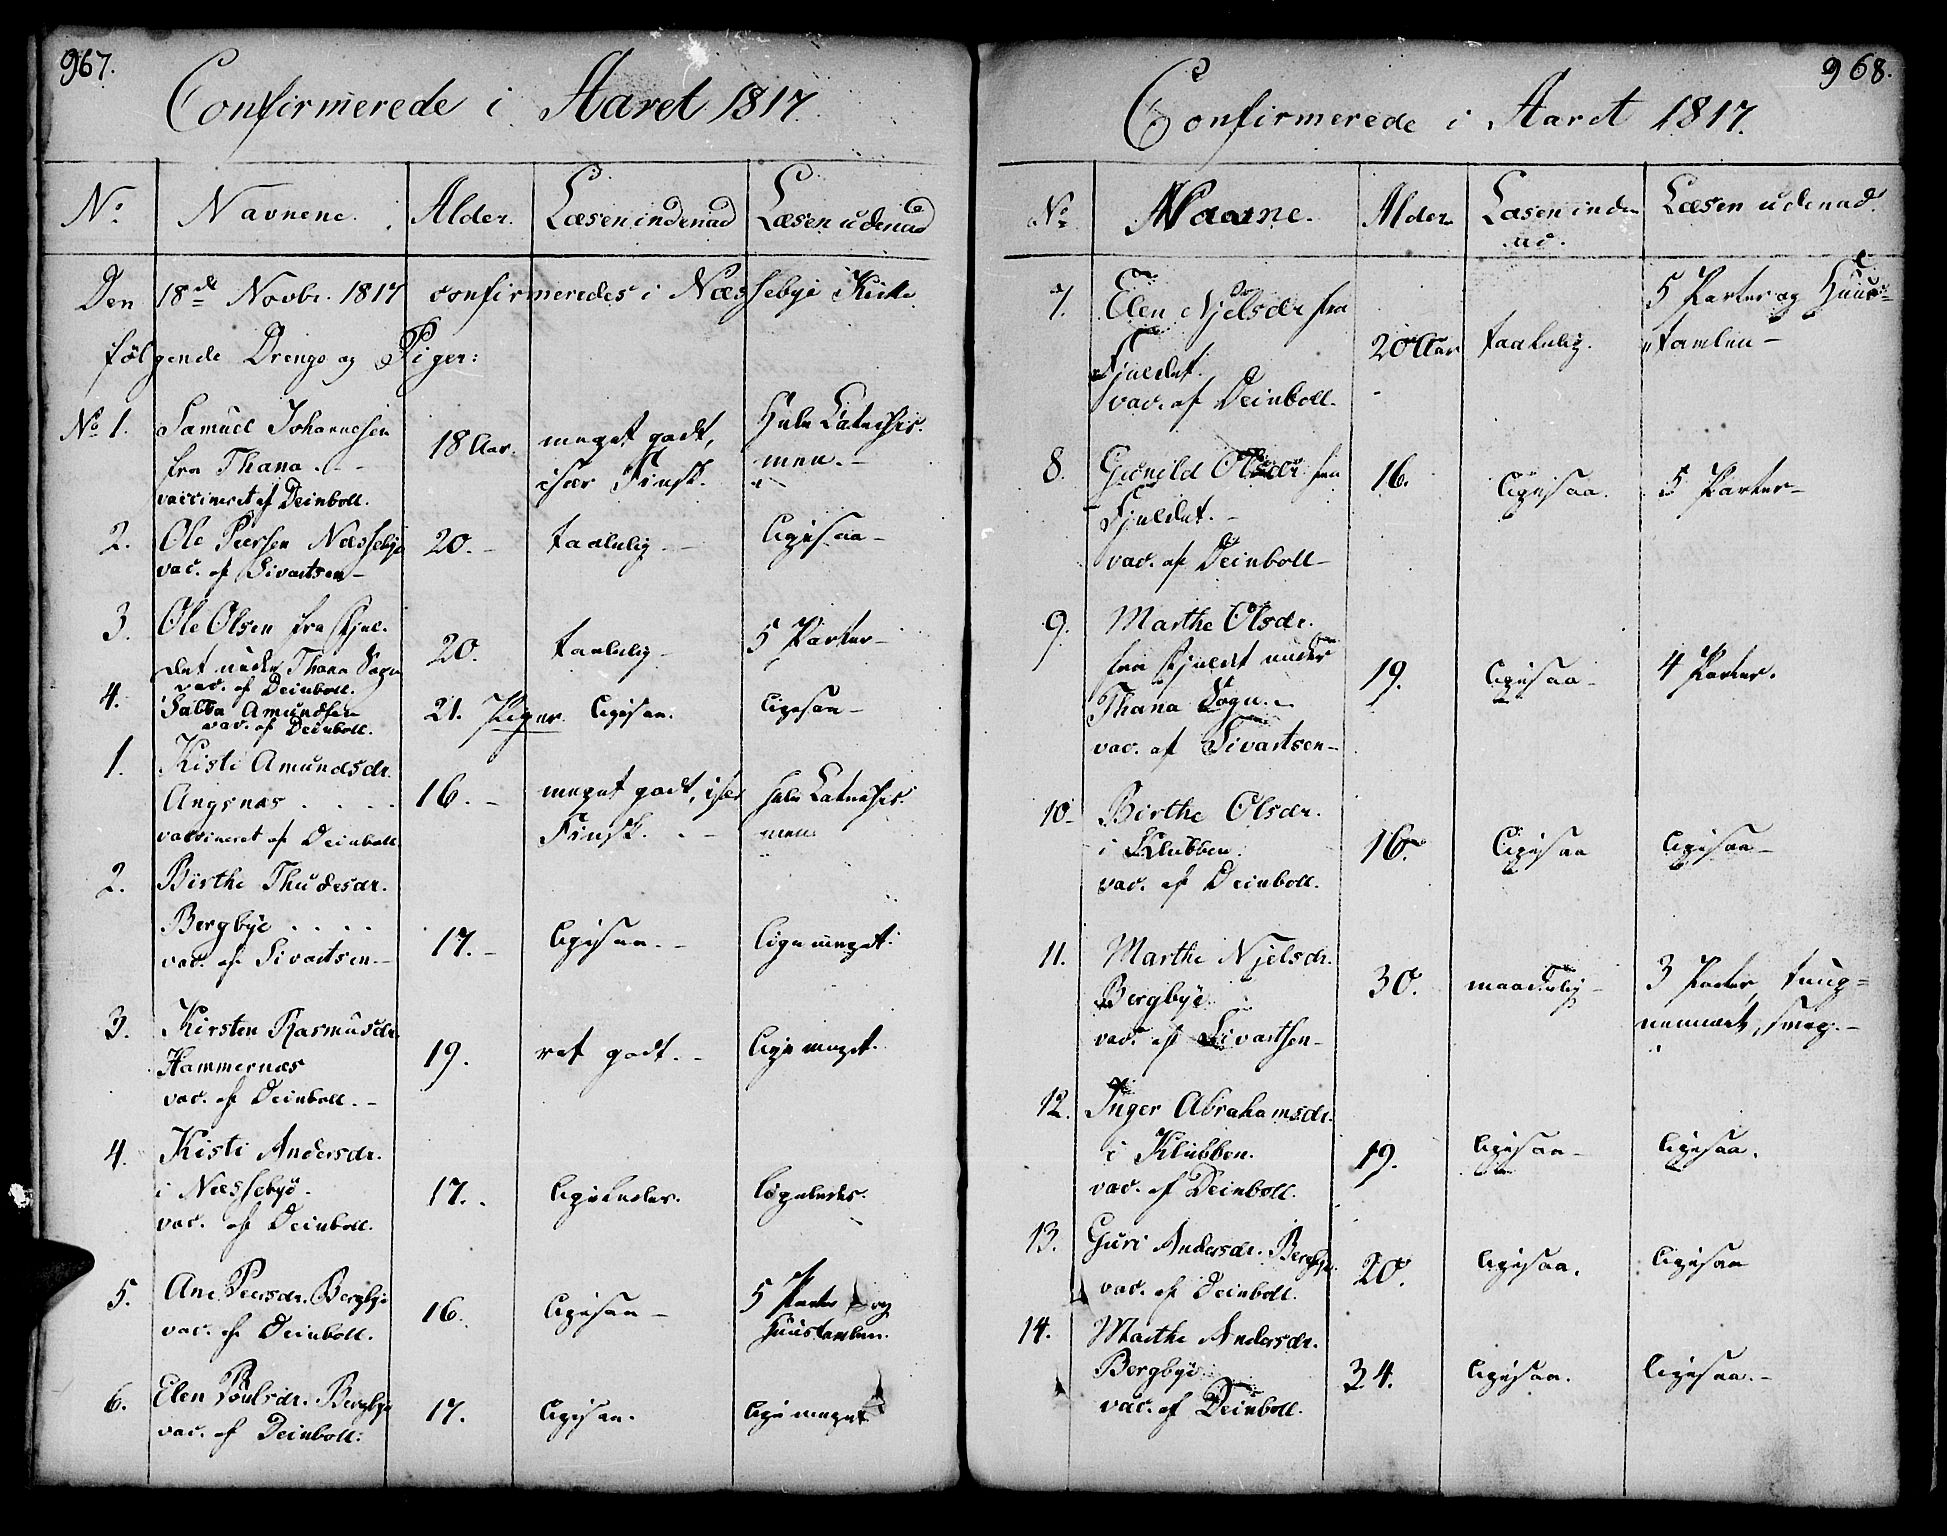 967.
Confirmerede i Aaret 1817.
No. Navnene. Alder. Læsen indenad Læsen udenad
Den 18de Novbr. 1817 confirmeredes i Næssebye Kirke
følgende Drenge og Piger:
No 1. Samuel Johannesen
fra Thana. - -
vaccineret af Deinboll.
18 Aar.
meget godt,
især Finsk.
Hele Katechis-
men. -
2. Ole Peersen Næssebye
vac. af Sivartsen -
20. - taalelig - ligesaa -
3. Ole Olsen fra Fjel-
det under Thana Sogn
vac. af Deinboll.
20. taalelig - 5 Parter -
4. Salba Amundsen
vac. af Deinboll.
21. ligesaa. ligesaa -
Piger
1. Kisti Amundsdr.
Angsnæs . . . .
vaccineret af Deinboll
16. - meget godt, især
Finsk. . -
hele Katechis-
men.
2. Birthe Thudesdr.
Bergbye . . . .
vac. af Sivartsen. -
17. - ligesaa. - lige meget.
3. Kirsten Rasmusdr.
Hammernæs
vac. af Deinboll. -
19. ret godt. - lige meget.
4. Kisti Andersdr.
i Næssebye.
vac. af Deinboll.
17. . ligeledes. ligeledes.
5. Ane Peersdr. Bergbye
vac. af Deinboll.
16. ligesaa - 5 Parter og
Huustavlen.
6. Elen Poulsdr. Bergbye
vac. af Deinboll.
17. ligesaa. lige meget
968.
Confirmerede i Aaret 1817.
No Navne. Alder Læsen inden
ad. Læsen udenad.
7. Elen Njelsdr fra
Fjeldet.
vac. af Deinboll.
20 Aar taalelig.
5 Parter og Huus-
tavlen -
8. Gunild Olsdr fra
Fjeldet. -
vac. af Deinboll -
16. ligesaa. 5 Parter -
9. Marthe Olsdr.
fra Fjeldet under
Thana Sogn. -
vac. af Sivartsen -
19. ligesaa - 4 Parter.
10 - Birthe Olsdr.
i Klubben.
vac. af Deinboll.
16. ligesaa ligesaa -
11. Marthe Njelsdr.
Bergbye.
vac. af Sivartsen -
30. maadelig - 3 Parter, tung-
nemmet, svag. -
12. Inger Abrahamsdr.
i Klubben.
vac. af Deinboll.
19. ligesaa - ligesaa.
13. Guri Andersdr. Bergbye.
vac. af Deinboll.
20. ligesaa. ligesaa
14. Marthe Andersdr.
Bergbye
vac. af Deinboll.
34. ligesaa. ligesaa. -